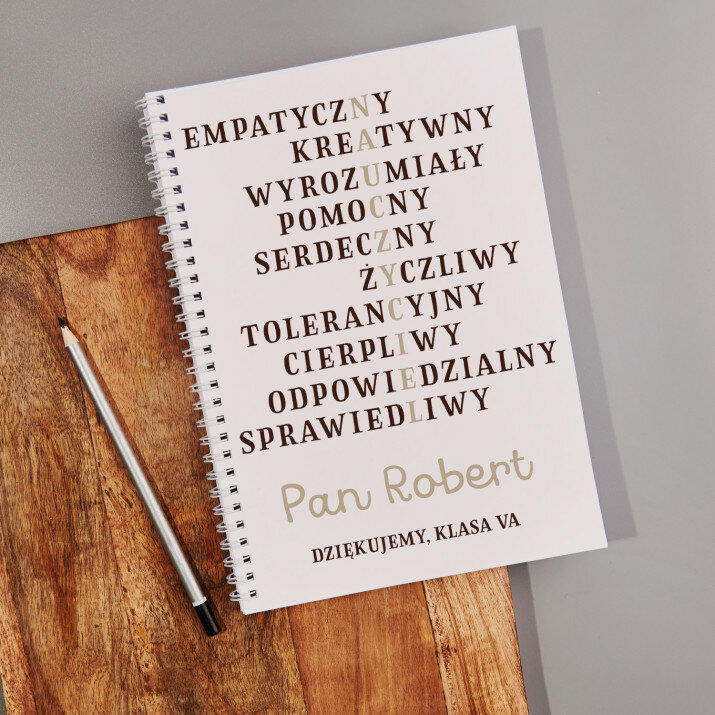 EMPATYCZNY
KREATYWNY
WYROZUMIAŁY
POMOCNY
SERDECZNY
ŻYCZLIWY
TOLERANCYJNY
CIERPLIWY
ODPOWIEDZIALNY
SPRAWIEDLIWY
Pan Robert
DZIĘKUJEMY, KLASA VA